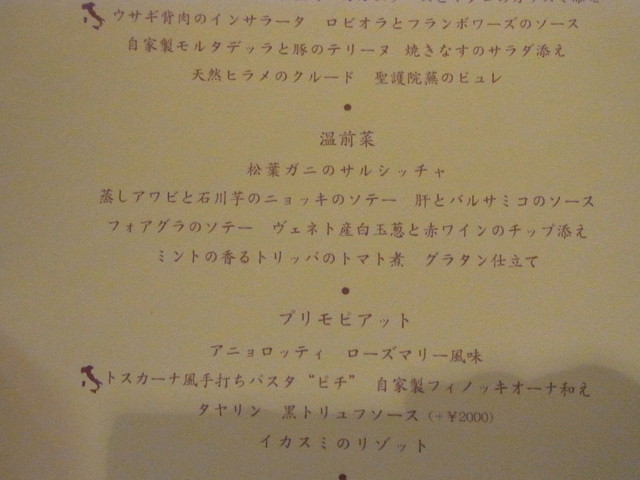 ウサギ背肉のインサラータ　ロビオラとフランボワーズのソース
自家製モルタデッラと豚のテリーヌ　焼きなすのサラダ添え
天然ヒラメのクルード　聖護院蕪のピュレ
●
温前菜
松葉ガニのサルシッチャ
蒸しアワビと石川芋のニョッキのソテー　肝とバルサミコのソース
フォアグラのソテー　ヴェネト産白玉葱と赤ワインのチップ添え
ミントの香るトリッパのトマト煮　グラタン仕立て
●
プリモピアット
アニョロッティ　ローズマリー風味
トスカーナ風手打ちパスタ“ピチ”　自家製フィノッキオーナ和え
タヤリン　黒トリュフソース（+￥2000）
イカスミのリゾット
●